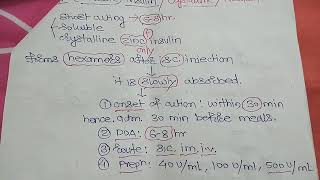 insulin
• Short acting → 6-8 hr.
• Soluble
• Crystalline zinc insulin
only
forms hexamers after s.c injection
it is slowly absorbed.
① onset of action: within 30 min
hence, adm. 30 min before meals.
② DOA: 6-8 hr
③ Route: s.c, im, iv.
④ Prepn: 40 U/mL, 100 U/mL, 500 U/mL